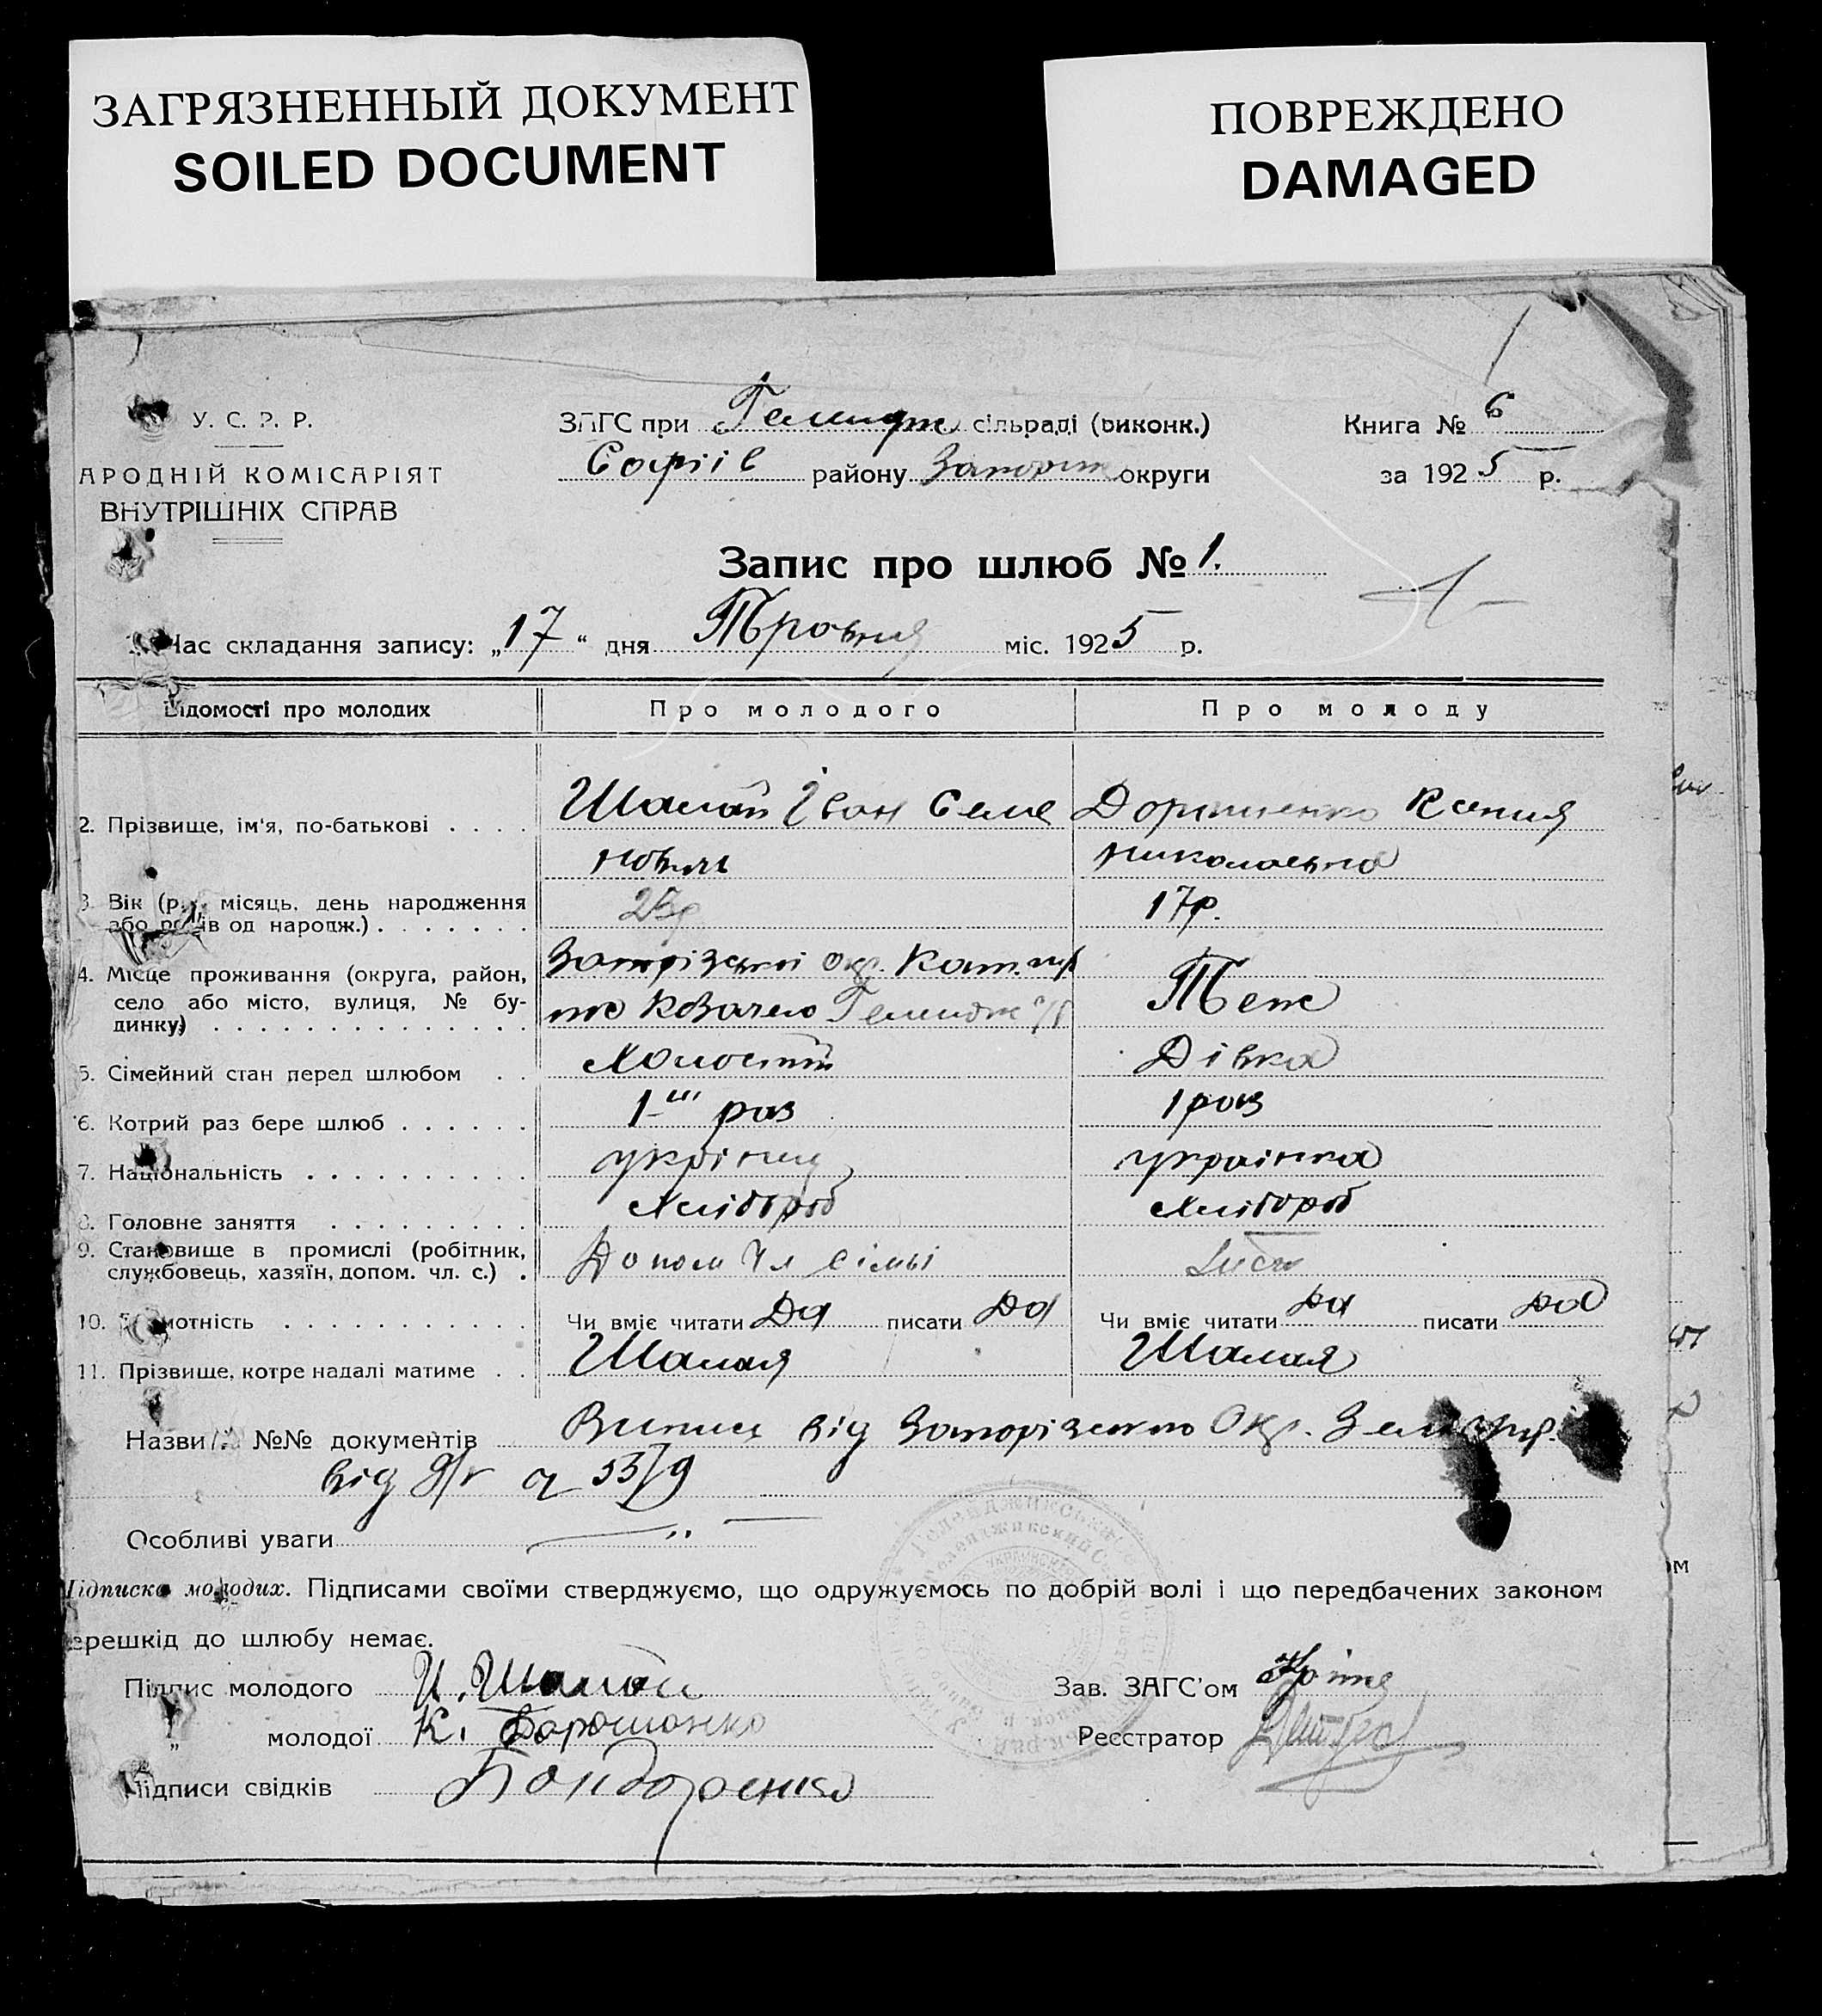 ЗАГРЯЗНЕННЫЙ ДОКУМЕНТ
SOILED DOCUMENT
ПОВРЕЖДЕНО
DAMAGED
У. С. Р. Р.
АРОДНІЙ КОМІСАРІЯТ
ВНУТРІШНІХ СПРАВ
ЗАГС при сільраді (виконк.)
Софіів району Запоріж округи
Книга № 6
за 1925 р.
Запис про шлюб № 1.
Час складання запису: „17“ дня Тровня міс. 1925 р.
Відомості про молодих Про молодого Про молоду
2. Прізвище, ім'я, по-батькові . . . . Шалай Іван Семе Дорошенко Ксения
нович николаевна
3. Вік (р., місяць, день народження
або років од народж.) . . . . . . . 17р.
4. Місце проживання (округа, район, Запорізької окр.
село або місто, вулиця, № бу- Теж
динку) . . . . . . . . . . . . . .
5. Сімейний стан перед шлюбом . . Холостий Дівка
6. Котрий раз бере шлюб . . . . . . 1-ш раз 1 раз
7. Національність . . . . . . . . . . українка
8. Головне заняття . . . . . . . . . Хлібороб Хлібороб
9. Становище в промислі (робітник, Допом Чл сімьі
службовець, хазяїн, допом. чл. с.) .
10. Грамотність . . . . . . . . . . . Чи вміє читати Да писати Да Чи вміє читати Да писати Да
11. Прізвище, котре надалі матиме . . Шалая Шалая
Назви №№ документів від Запорізького Окр.
від
Особливі уваги
Підписка молодих. Підписами своїми стверджуємо, що одружуємось по добрій волі і що передбачених законом
ерешкід до шлюбу немає.
Підпис молодого И. Шалай
Зав. ЗАГС'ом
„ молодої К. Дорошенко
Реєстратор
Підписи свідків Бондаренко